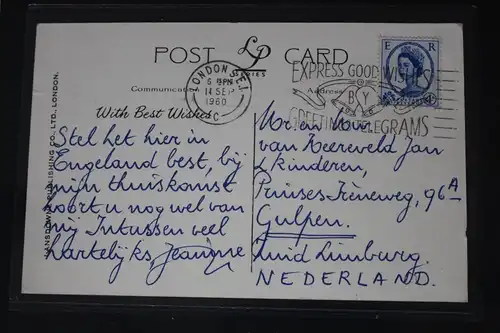 POST LP CARD
SERIES
Communication
Address
LONDON S.E.1.
6 PM
14 SEP
1960
C
EXPRESS GOOD WISHES
BY
GREETINGS TELEGRAMS
E R
With Best Wishes
Stel het hier in
Engeland best, bij
mijn thuiskomst
hoort u nog wel van
mij Intussen veel
hartelijks Jeanine
Mr. en Mevr.
van Meereveld Jan
kinderen,
Prinses Ireneweg, 96A
Gulpen.
Zuid Limburg.
NEDERLAND.
LANSDOWNE PUBLISHING CO., LTD., LONDON.